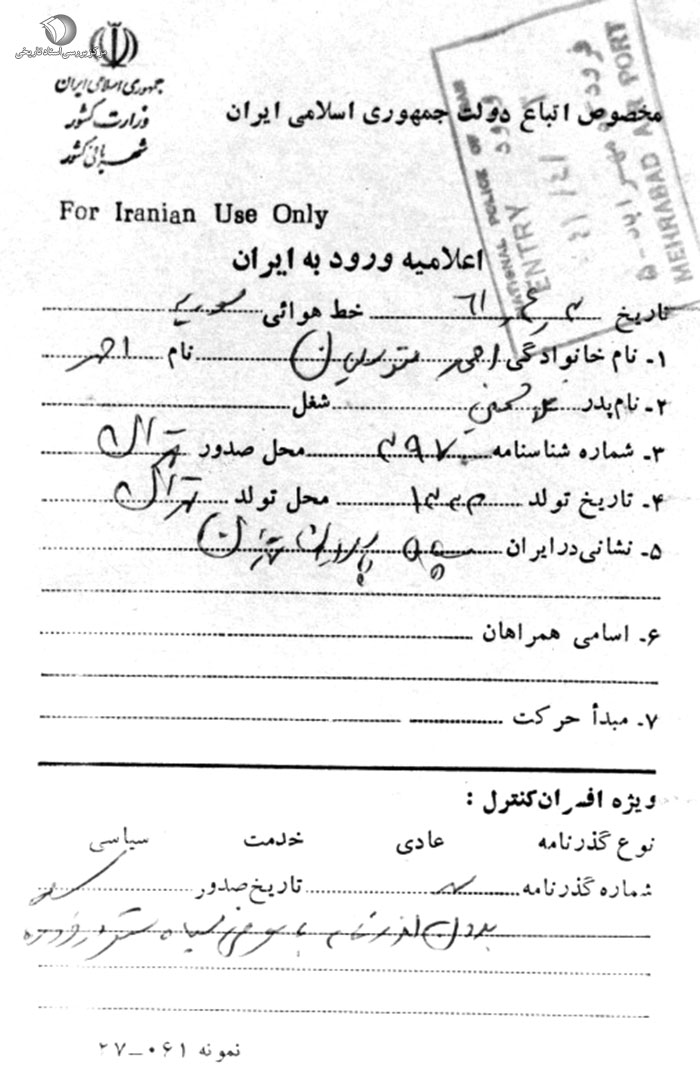 مرکز بررسی اسناد تاریخی
جمهوری اسلامی ایران
وزارت کشور
شهربانی کشور
مخصوص اتباع دولت جمهوری اسلامی ایران
NATIONAL POLICE OF IRAN
ENTRY ورود
فرودگاه مهرآباد - ۵
MEHRABAD AIR PORT
For Iranian Use Only
اعلامیه ورود به ایران
تاریخ ۶۱ خط هوائی
۱- نام خانوادگی متوسلیان نام احمد
۲- نام پدر غلامحسین شغل
۳- شماره شناسنامه ۳۹۷ محل صدور تهران
۴- تاریخ تولد ۱۳۳۲ محل تولد تهران
۵- نشانی در ایران سپاه پاسداران تهران
۶- اسامی همراهان
۷- مبدأ حرکت
ویژه افسران کنترل :
نوع گذرنامه عادی خدمت سیاسی
شماره گذرنامه تاریخ صدور
بدون گذرنامه با معرفی سپاه
نمونه ۰۶۱-۲۷